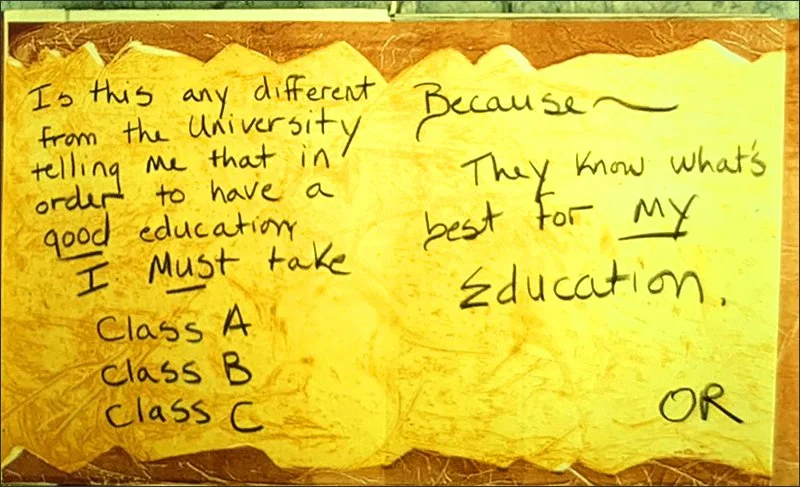 Is this any different
from the University
telling me that in
order to have a
good education
I Must take
Class A
Class B
Class C
Because
They know what's
best for MY
Education.
OR